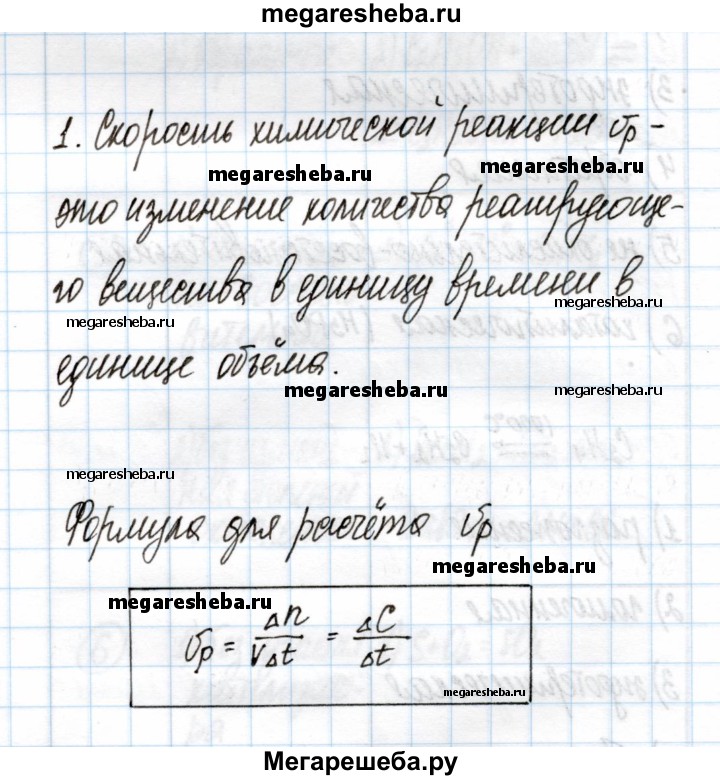 megaresheba.ru
1. Скорость химической реакции υр -
megaresheba.ru
megaresheba.ru
это изменение количества реагирующе-
го вещества в единицу времени в
megaresheba.ru
megaresheba.ru
единице объёма.
megaresheba.ru
megaresheba.ru
megaresheba.ru
Формула для расчёта υр
megaresheba.ru
megaresheba.ru
υр = Δn / VΔt = ΔC / Δt
megaresheba.ru
Мегарешеба.ру